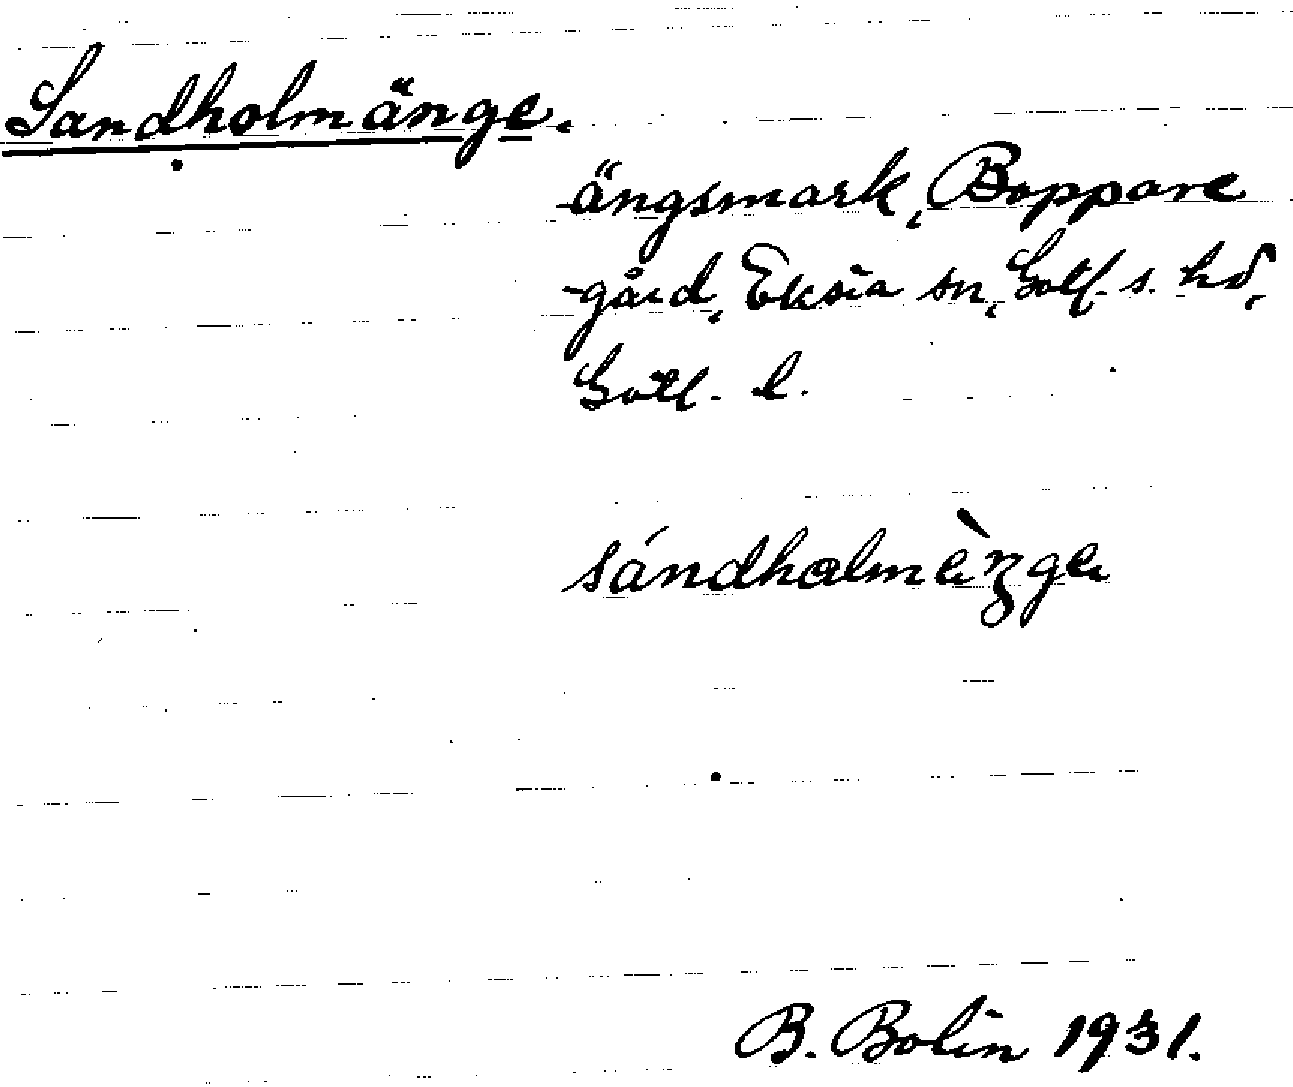 Sandholmänge.
ängsmark, Boppare
gård, Eksta sn, Gotl. s. hd,
Gotl. l.
sándhalmèŋge
B. Bolin 1931.